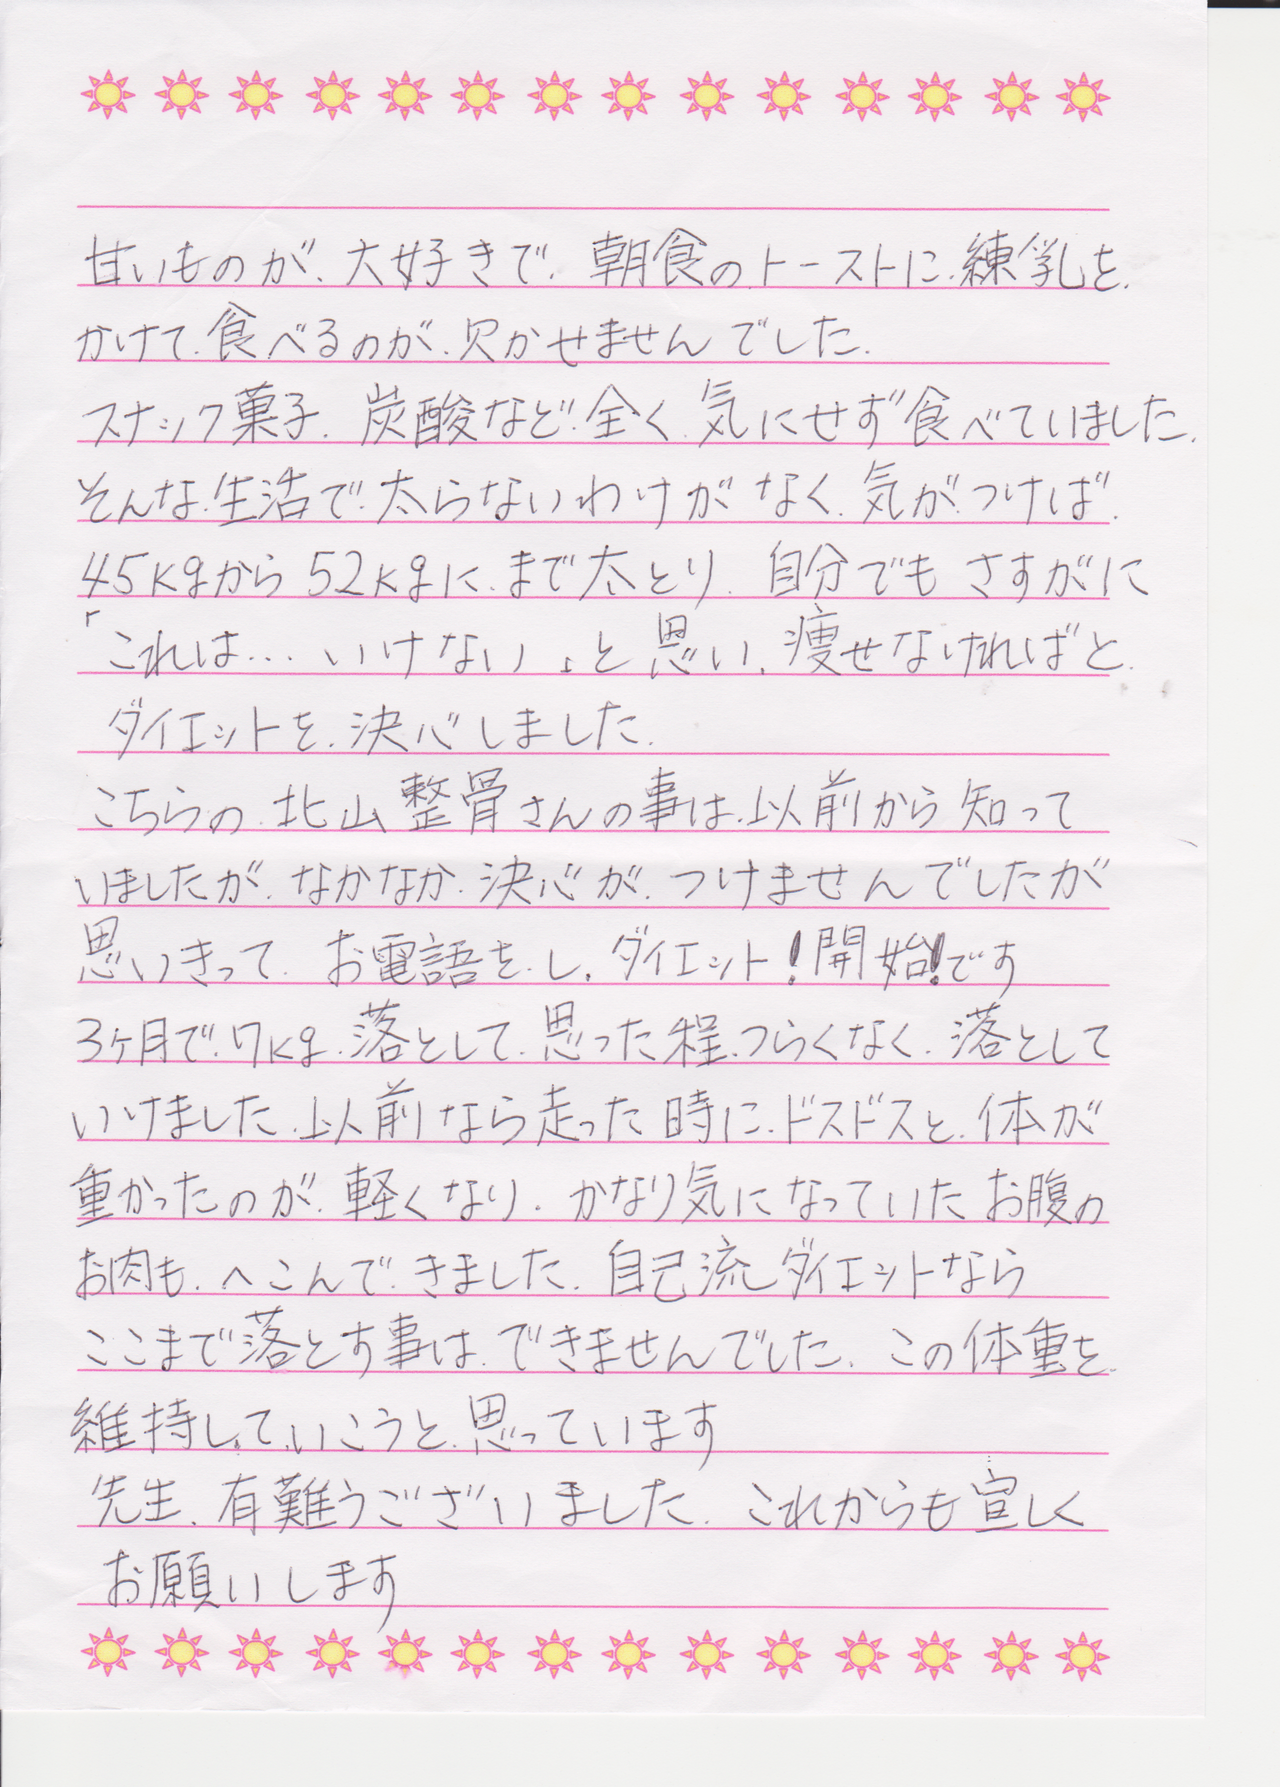 甘いものが、大好きで、朝食のトーストに、練乳を、
かけて、食べるのが、欠かせませんでした。
スナック菓子、炭酸など、全く、気にせず食べていました。
そんな、生活で、太らないわけがなく、気が、つけば、
45kgから52kgに、まで太とり、自分でもさすがに
「これは…いけない」と思い、痩せなければと、
ダイエットを、決心しました。
こちらの、北山整骨さんの事は、以前から知って
いましたが、なかなか、決心が、つけませんでしたが
思いきって、お電語を、し、ダイエット!開始!です
3ヶ月で、7kg、落として、思った程、つらくなく、落として
いけました、以前なら走った時に、ドスドスと、体が
重かったのが、軽くなり、かなり気になっていたお腹の
お肉も、へこんで、きました、自己流ダイエットなら
ここまで落とす事は、できませんでした、この体重を、
維持し、て、いこうと、思っています
先生、有難うございました。これからも宜しく
お願いします